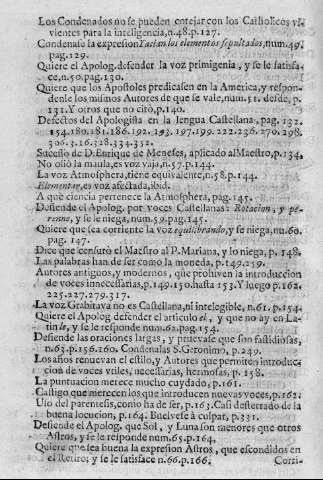 Los Condenados no se pueden cotejar con los Catholicos vi-
vientes para la inteligencia, n.48. p.127.
Condenase la expresion Yacian los elementos sepultados, num.49.
pag.129.
Quiere el Apolog. defender la voz primigenia, y se le satisfa-
ce, n.50. pag.130.
Quiere que los Apostoles predicasen en la America, y respon-
dente los mismos Autores de que se vale, num.51. desde, p.
131. Y otros que no citò, p.140.
Defectos del Apologista en la lengua Castellana, pag. 132.
154. 180. 181. 186. 192. 193. 197. 199. 222. 236. 270. 298.
306. 3.16. 328. 334. 352.
Sucesso de D. Enrique de Meneses, aplicado al Maestro, p.134.
No oliò la maula, es voz vaja, n.57. p.144.
La voz Atmosfera, tiene equivalente, n.58. p.144.
Elementar, es voz afectada, ibid.
A què ciencia pertenece la Atmosphera, pag. 145.
Defiende el Apolog. por voces Castellanas: Rotacion, y pe-
renne, y se le niega, num.59. pag.145.
Quiere que sea corriente la voz equilibrando, y se niega, nu.60.
pag. 147.
Dice que censurò el Maestro al P. Mariana, y lo niega, p. 148.
Las palabras han de ser como la moneda, p.149. 259.
Autores antiguos, y modernos, que prohiven la introduccion
de voces innecessarias, p.149. 150. hasta 153. Y luego p.162.
225. 227. 279. 317.
La voz Grabitava no es Castellana, ni intelegible, n.61. p.154.
Quiere el Apolog. defender el articulo el, y que no ay en La-
tin le, y se le responde num.62. pag.154.
Defiende las oraciones largas, y pruevase que son fastidiosas,
n.63. p.156. 160. Condenalas S. Geronimo, p. 240.
Los años renuevan el estilo, y Autores que permiten introduc-
cion de voces utiles, necessarias, hermosas, p. 158.
La puntuacion merece mucho cuydado, p.161.
Castigo que merecen los que introducen nuevas voces, p.162.
Uso del parentesis, como ha de ser, p.163. Casi desterrado de la
buena locucion, p.164. Buelvese à culpar, p.331.
Defiende el Apolog. que Sol, y Luna son menores que otros
Astros, y se le responde num.65. p.164.
Quiere que sea buena la expresion Astros, que escondidos en
el Retiro; y se le satisface n.66. p.166.
Corri-